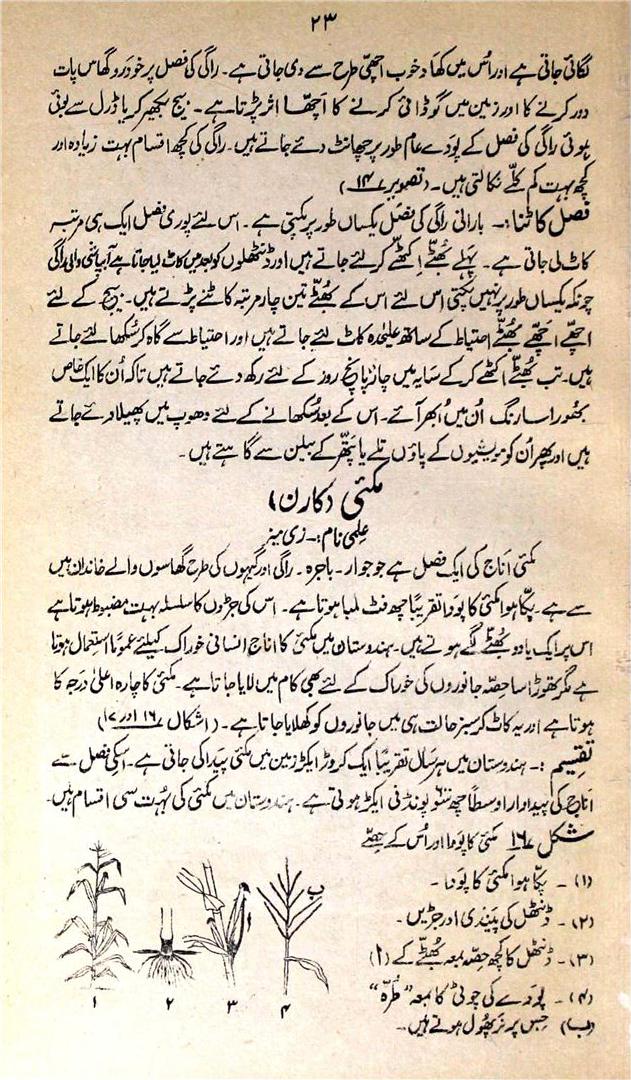 ۲۳
لگائی جاتی ہے اور اُس میں کھاد خوب اچھی طرح سے دی جاتی ہے۔ راگی کی فصل پر خودرو گھاس پات
دور کرنے کا اور زمین میں گوڈائی کرنے کا اچھا اثر پڑتا ہے۔ بیج بکھیر کر یا ڈرل سے بوئی
ہوئی راگی کی فصل کے پودے عام طور پر چھانٹ دئے جاتے ہیں۔ راگی کی کچھ اقسام بہت زیادہ اور
کچھ بہت کم کلّے نکالتی ہیں۔ (تصویر ۱۴)
فصل کاٹنا:۔ بارانی راگی کی فصل یکساں طور پر پکتی ہے۔ اس لئے پوری فصل ایک ہی مرتبہ
کاٹ لی جاتی ہے۔ پہلے بھُٹّے اکٹھے کر لئے جاتے ہیں اور ڈنٹھلوں کو بعد میں کاٹ لیا جاتا ہے آبپاشی والی راگی
چونکہ یکساں طور پر نہیں پکتی اس لئے اس کے بھُٹّے تین چار مرتبہ کاٹنے پڑتے ہیں۔ بیج کے لئے
اچھے اچھے بھُٹّے احتیاط کے ساتھ علیحدہ کاٹ لئے جاتے ہیں اور احتیاط سے گاہ کر سُکھا لئے جاتے
ہیں۔ تب بھُٹّے اکٹھے کر کے سایہ میں چار پانچ روز کے لئے رکھ دئے جاتے ہیں تاکہ اُن کا ایک خاص
بھُورا سا رنگ اُن میں اُبھر آئے۔ اس کے بعد سُکھانے کے لئے دھوپ میں پھیلا دئے جاتے
ہیں اور پھر اُن کو مویشیوں کے پاؤں تلے یا پتھّر کے بیلن سے گاہتے ہیں۔
مکئی (کارن)
علمی نام:۔ زی میز
مکئی اناج کی ایک فصل ہے جو جوار۔ باجرہ۔ راگی اور گیہوں کی طرح گھاسوں والے خاندان میں
سے ہے۔ پکّا ہوا مکئی کا پودا تقریباً چھ فٹ لمبا ہوتا ہے۔ اس کی جڑوں کا سلسلہ بہت مضبوط ہوتا ہے
اس پر ایک یا دو بھُٹّے لگے ہوتے ہیں۔ ہندوستان میں مکئی کا اناج انسانی خوراک کیلئے عموماً استعمال ہوتا
ہے مگر تھوڑا سا حصّہ جانوروں کی خوراک کے لئے بھی کام میں لایا جاتا ہے۔ مکئی کا چارہ اعلیٰ درجہ کا
ہوتا ہے اور یہ کاٹ کر سبز حالت ہی میں جانوروں کو کھلایا جاتا ہے۔ (اشکال ۱۶ اور ۱۷)
تقسیم:۔ ہندوستان میں ہر سال تقریباً ایک کروڑ ایکڑ زمین میں مکئی پیدا کی جاتی ہے۔ اسکی فصل سے
اناج کی پیداوار اوسطاً چھ سَو پونڈ فی ایکڑ ہوتی ہے۔ ہندوستان میں مکئی کی بہُت سی اقسام ہیں۔
شکل ۱۶ مکئی کا پودا اور اُس کے حصّے
(۱)۔ پکّا ہوا مکئی کا پودا۔
(۲)۔ ڈنٹھل کی پیندی اور جڑیں۔
(۳)۔ ڈنٹھل کا کچھ حصّہ بمعہ بھُٹّے کے (ا)
(۴)۔ پودے کی چوٹی کا بمعہ "طُرّہ"
(ب) جس پر نر پھُول ہوتے ہیں۔
ب
ا
۱ ۲ ۳ ۴